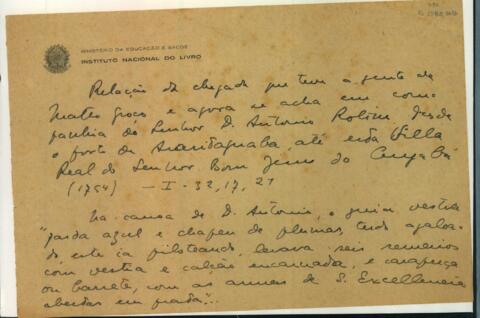 MINISTÉRIO DA EDUCAÇÃO E SAÚDE
INSTITUTO NACIONAL DO LIVRO
Relação da chegada que teve a gente de
Mato Groço e agora se acha em com-
panhia do Senhor D. Antonio Rolim desde
o porto de Araritaguaba, até esta Villa
Real do Senhor Bom Jesus do Cuyabá
(1754) — I-32,17,21
na canoa de D. Antonio, o guia vestia
"farda azul e chapeu de plumas, tudo agaloa-
do este ia piloteando, levava seis remeiros
com vestia e calção encarnada, e carapuça
ou barrete, com as armas de S. Excellencia
abertas em prata"...